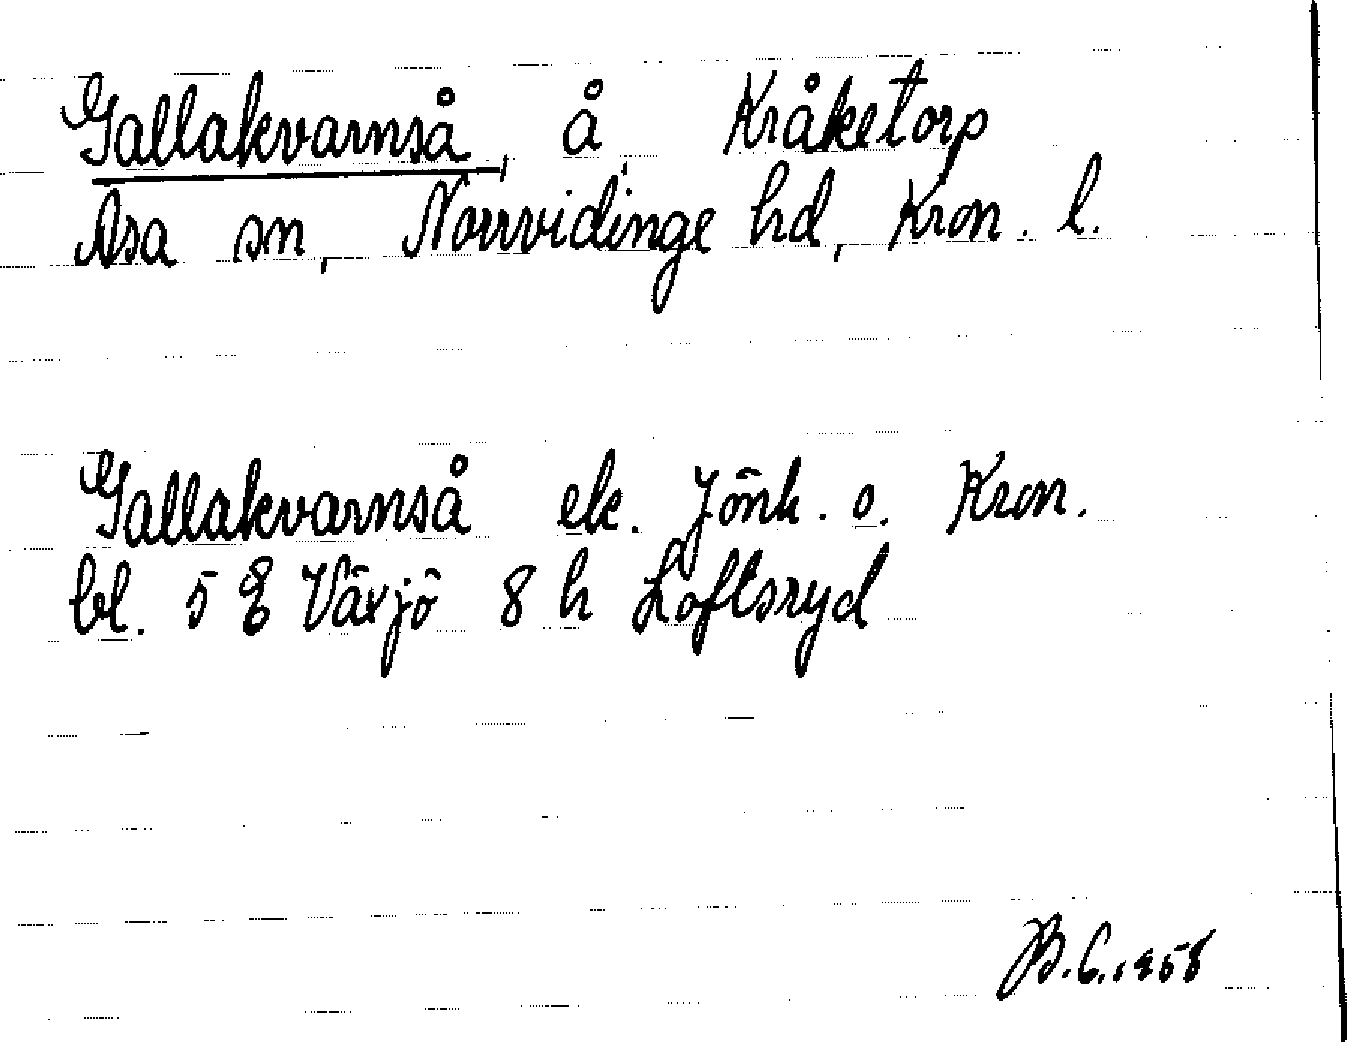 Gallakvarnså, å, Kråketorp
Asa sn, Norrvidinge hd, Kron. l.
Gallakvarnså ek. Jönk. o. Kron.
bl. 5 E Växjö 8 h Loftsryd
B.C. 1958